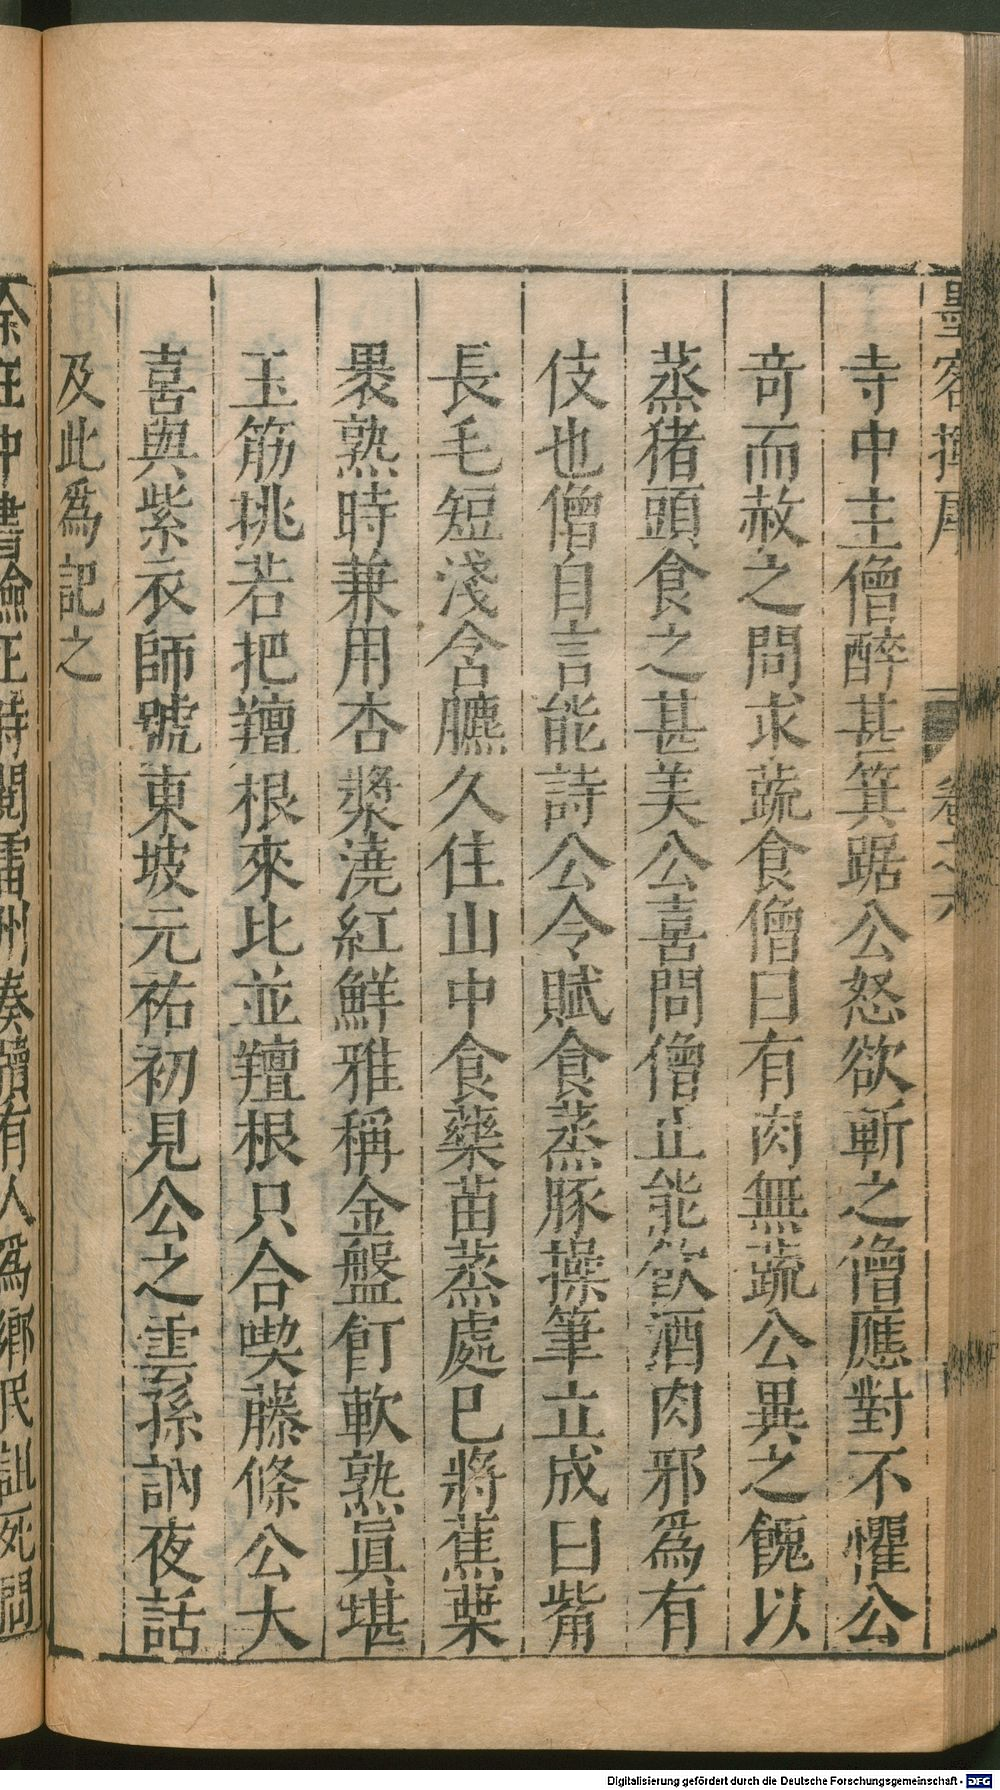 墨客揮犀 卷之六
寺中主僧醉甚箕踞公怒欲斬之僧應對不懼公
竒而赦之問求蔬食僧曰有肉無蔬公異之餽以
蒸猪頭食之甚美公喜問僧止能飲酒肉邪為有
伎也僧自言能詩公令賦食蒸豚操筆立成曰觜
長毛短淺含臕久住山中食藥苗蒸處已將蕉葉
褁熟時兼用杏漿澆紅鮮雅稱金盤飣軟熟眞堪
玉筯挑若把羶根來比並羶根只合喫藤條公大
喜與紫衣師號東坡元祐初見公之雲孫訥夜話
及此爲記之
余在中書檢正時閱雷州奏牘有人爲鄉民詛死問
Digitalisierung gefördert durch die Deutsche Forschungsgemeinschaft - DFG